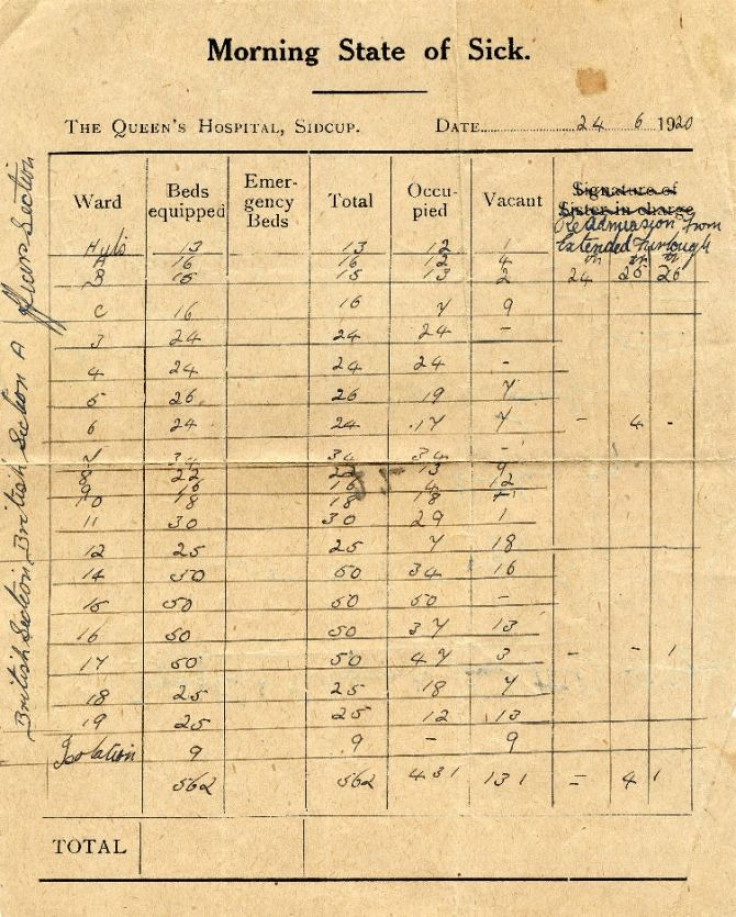 Morning State of Sick.
THE QUEEN'S HOSPITAL, SIDCUP. DATE 24 6 1920
Ward Beds equipped Emergency Beds Total Occupied Vacant Signature of Sister in charge
Readmission from
Extended Furlough
on on on
24 25 26
13 13 12 1
A 16 16 12 4
B 15 15 13 2
C 16 16 7 9
3 24 24 24 -
4 24 24 24 -
5 26 26 19 7
6 24 24 17 7 - 4 -
7 34 34 34 -
8 22 22 13 9
9 16 16 4 12
10 18 18 18 -
11 30 30 29 1
12 25 25 7 18
14 50 50 34 16
15 50 50 50 -
16 50 50 37 13
17 50 50 47 3 - - 1
18 25 25 18 7
19 25 25 12 13
Isolation 9 9 - 9
562 562 431 131 = 4 1
TOTAL
British Section, British Section A Officers Section